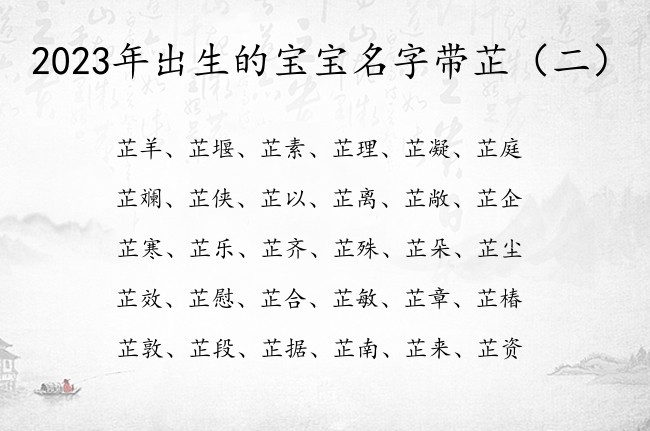 2023年出生的宝宝名字带芷（二）
芷羊、芷堰、芷素、芷理、芷凝、芷庭
芷斓、芷侠、芷以、芷离、芷敞、芷企
芷寒、芷乐、芷齐、芷殊、芷朵、芷尘
芷效、芷慰、芷合、芷敏、芷章、芷椿
芷敦、芷段、芷据、芷南、芷来、芷资